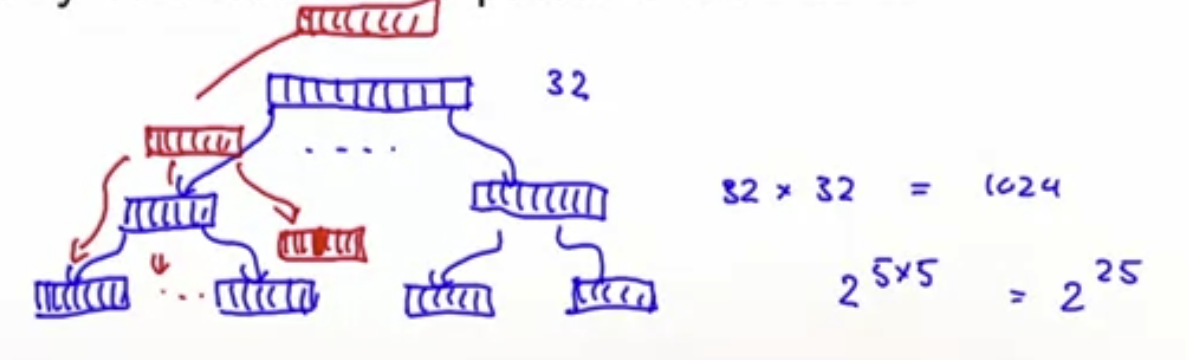 32
32 × 32 = 1024
2^5×5 = 2^25